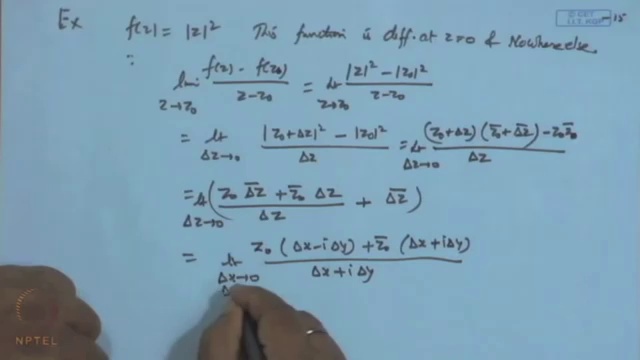 Ex f(z) = |z|² This function is diff. at z=0 & Nowhere else.
∵ lim z→z₀ (f(z) - f(z₀))/(z - z₀) = lt z→z₀ (|z|² - |z₀|²)/(z - z₀)
= lt Δz→0 (|z₀+Δz|² - |z₀|²)/Δz = lt Δz→0 ((z₀+Δz)(z̅₀+Δ̅z̅) - z₀z̅₀)/Δz
= lt Δz→0 ((z₀ Δ̅z̅ + z̅₀ Δz)/Δz + Δ̅z̅)
= lt Δx→0 Δ (z₀ (Δx - iΔy) + z̅₀ (Δx + iΔy))/(Δx + iΔy)
NPTEL